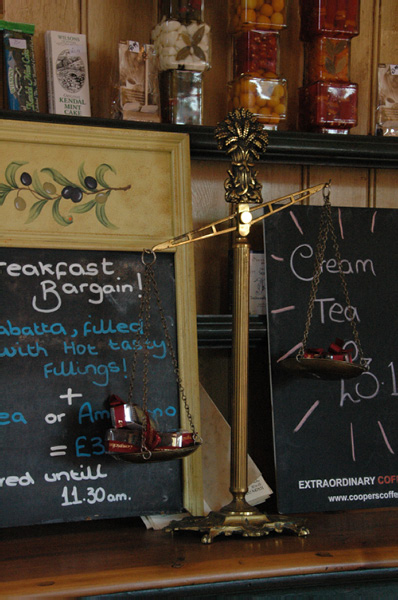 KENDAL
MINT CAKE
reakfast
Bargain!
abatta, filled
with Hot tasty
fillings!
+
ea or Am no
= £3
red untill
11.30 am.
Cream
Tea
EXTRAORDINARY COF
www.cooperscoffe